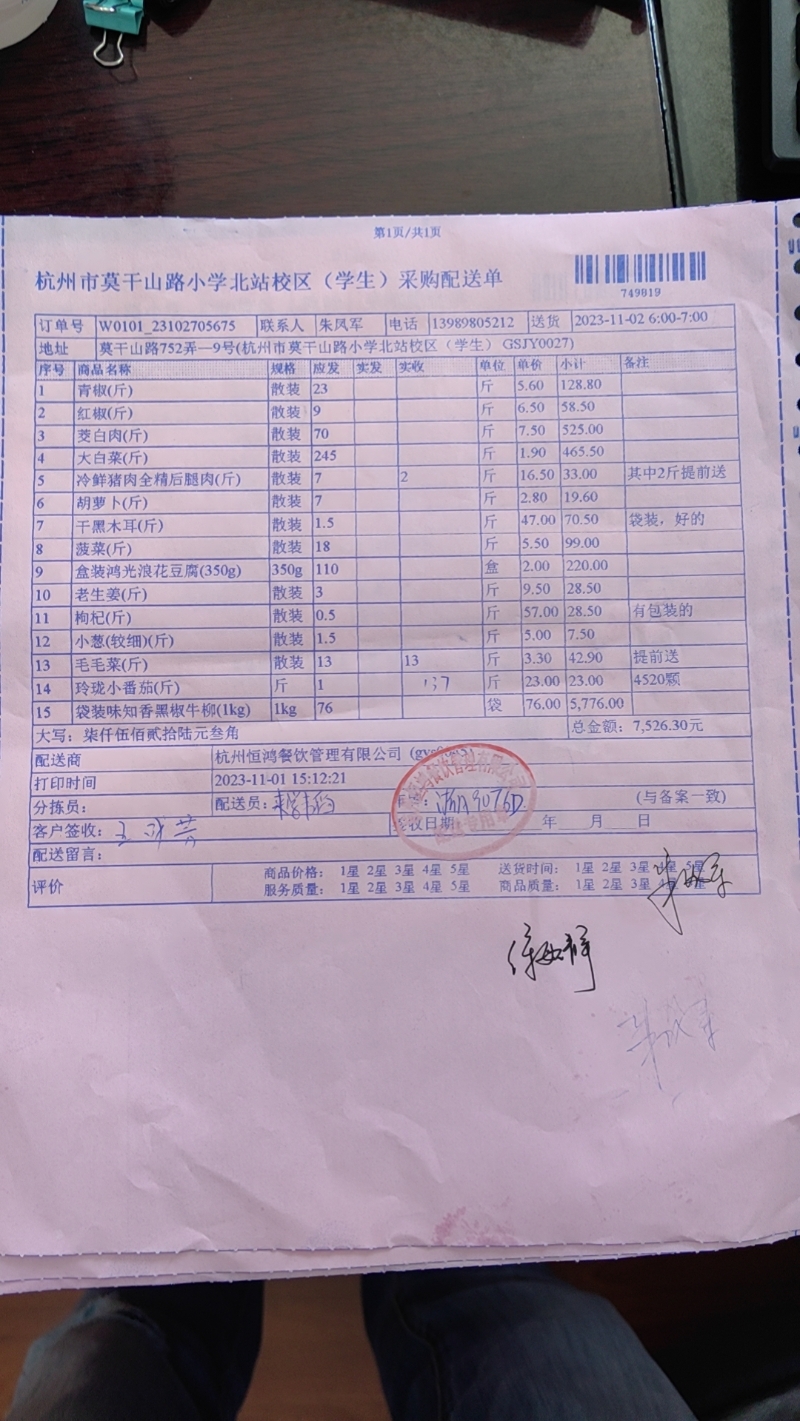 第1页/共1页
杭州市莫干山路小学北站校区（学生）采购配送单
749819
订单号 W0101_23102705675 联系人 朱凤军 电话 13989805212 送货 2023-11-02 6:00-7:00
地址 莫干山路752弄—9号(杭州市莫干山路小学北站校区（学生） GSJY0027)
序号 商品名称 规格 应发 实发 实收 单位 单价 小计 备注
1 青椒(斤) 散装 23 斤 5.60 128.80
2 红椒(斤) 散装 9 斤 6.50 58.50
3 茭白肉(斤) 散装 70 斤 7.50 525.00
4 大白菜(斤) 散装 245 斤 1.90 465.50
5 冷鲜猪肉全精后腿肉(斤) 散装 7 2 斤 16.50 33.00 其中2斤提前送
6 胡萝卜(斤) 散装 7 斤 2.80 19.60
7 干黑木耳(斤) 散装 1.5 斤 47.00 70.50 袋装，好的
8 菠菜(斤) 散装 18 斤 5.50 99.00
9 盒装鸿光浪花豆腐(350g) 350g 110 盒 2.00 220.00
10 老生姜(斤) 散装 3 斤 9.50 28.50
11 枸杞(斤) 散装 0.5 斤 57.00 28.50 有包装的
12 小葱(较细)(斤) 散装 1.5 斤 5.00 7.50
13 毛毛菜(斤) 散装 13 13 斤 3.30 42.90 提前送
14 玲珑小番茄(斤) 斤 1 137 斤 23.00 23.00 4520颗
15 袋装味知香黑椒牛柳(1kg) 1kg 76 袋 76.00 5,776.00
大写：柒仟伍佰贰拾陆元叁角 总金额：7,526.30元
配送商 杭州恒鸿餐饮管理有限公司
打印时间 2023-11-01 15:12:21
分拣员： 配送员： (与备案一致)
客户签收： 签收日期： 年 月 日
配送留言：
评价 商品价格： 1星 2星 3星 4星 5星 送货时间： 1星 2星 3星 4星 5星
服务质量： 1星 2星 3星 4星 5星 商品质量： 1星 2星 3星 4星 5星